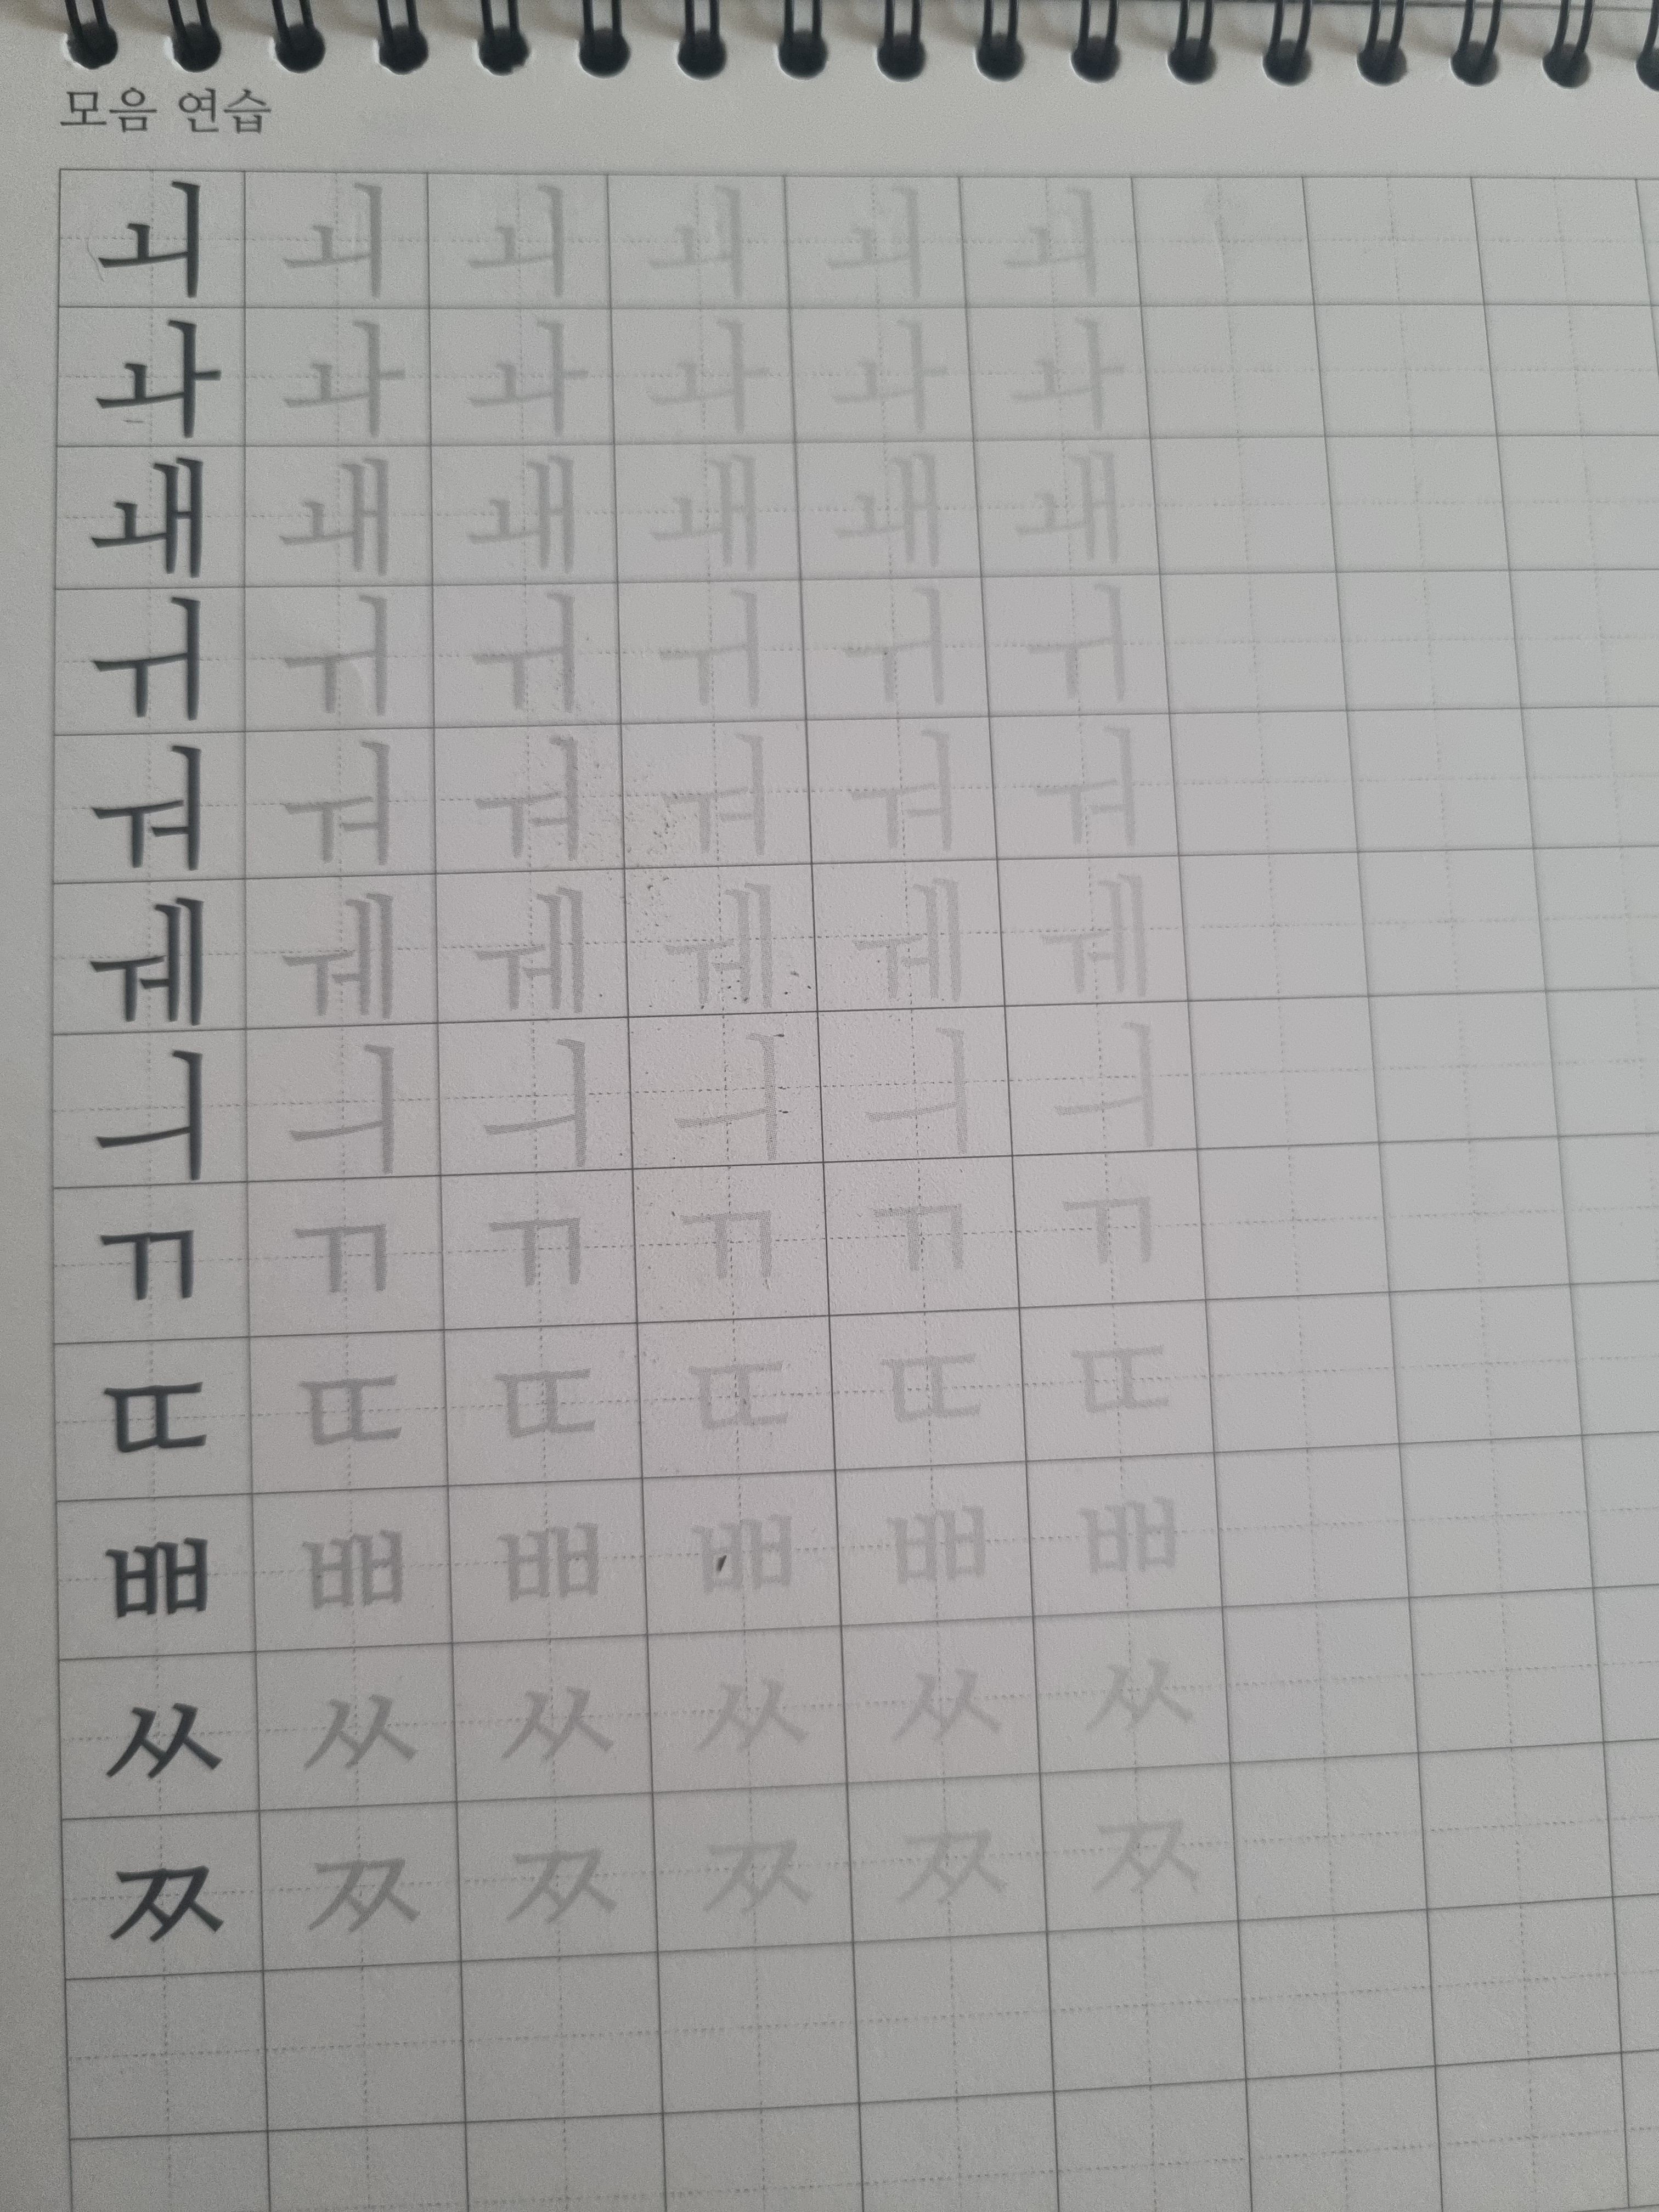 모음 연습
ㅚ ㅚ ㅚ ㅚ ㅚ ㅚ
ㅘ ㅘ ㅘ ㅘ ㅘ ㅘ
ㅙ ㅙ ㅙ ㅙ ㅙ ㅙ
ㅟ ㅟ ㅟ ㅟ ㅟ ㅟ
ㅝ ㅝ ㅝ ㅝ ㅝ ㅝ
ㅞ ㅞ ㅞ ㅞ ㅞ ㅞ
ㅢ ㅢ ㅢ ㅢ ㅢ ㅢ
ㄲ ㄲ ㄲ ㄲ ㄲ ㄲ
ㄸ ㄸ ㄸ ㄸ ㄸ ㄸ
ㅃ ㅃ ㅃ ㅃ ㅃ ㅃ
ㅆ ㅆ ㅆ ㅆ ㅆ ㅆ
ㅉ ㅉ ㅉ ㅉ ㅉ ㅉ